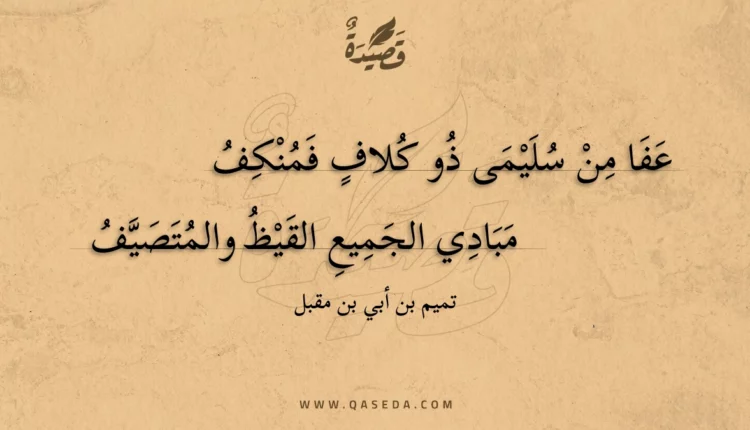 قَصِيدَةٌ
عَفَا مِنْ سُلَيْمَى ذُو كُلافٍ فَمُنْكِفُ
مَبَادِي الجَمِيعِ القَيْظُ والمُتَصَيَّفُ
تميم بن أبي بن مقبل
WWW.QASEDA.COM